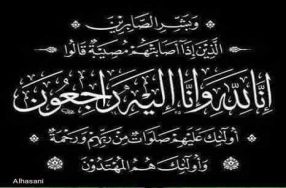 وَبَشِّرِ الصَّابِرِينَ
الَّذِينَ إِذَا أَصَابَتْهُمْ مُصِيبَةٌ قَالُوا
إِنَّا لِلَّهِ وَإِنَّا إِلَيْهِ رَاجِعُونَ
أُولَئِكَ عَلَيْهِمْ صَلَوَاتٌ مِنْ رَبِّهِمْ وَرَحْمَةٌ
وَأُولَئِكَ هُمُ الْمُهْتَدُونَ
Alhasani